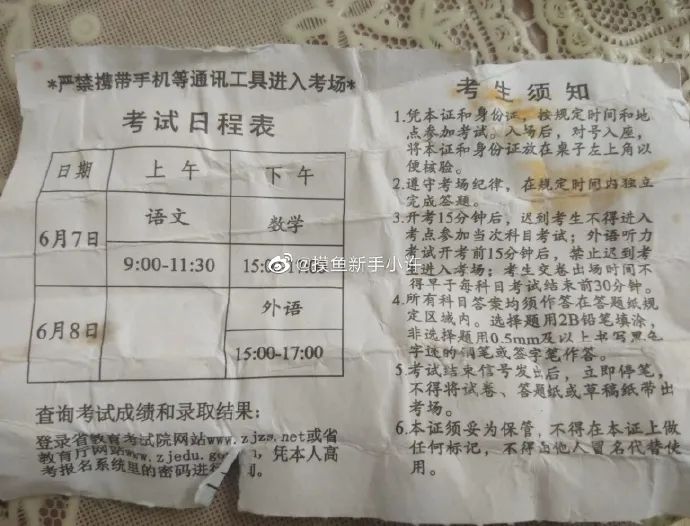 *严禁携带手机等通讯工具进入考场*
考试日程表
日期 上午 下午
6月7日 语文 数学
9:00-11:30 15:00-17:00
6月8日 外语
15:00-17:00
查询考试成绩和录取结果：
登录省教育考试院网站www.zjzs.net或省
教育厅网站www.zjedu.go，凭本人高
考报名系统里的密码进行
考生须知
1.凭本证和身份证，按规定时间和地
点参加考试。入场后，对号入座，
将本证和身份证放在桌子左上角以
便核验。
2.遵守考场纪律，在规定时间内独立
完成答题。
3.开考15分钟后，迟到考生不得进入
考点参加当次科目考试；外语听力
考试开考前15分钟后，禁止迟到考
生进入考场；考生交卷出场时间不
得早于每科目考试结束前30分钟。
4.所有科目答案均须作答在答题纸规
定区域内。选择题用2B铅笔填涂，
非选择题用0.5mm及以上书写黑色
字迹的钢笔或签字笔作答。
5.考试结束信号发出后，立即停笔，
不得将试卷、答题纸或草稿纸带出
考场。
6.本证须妥为保管，不得在本证上做
任何标记，不得由他人冒名代替使
用。
@摸鱼新手小许